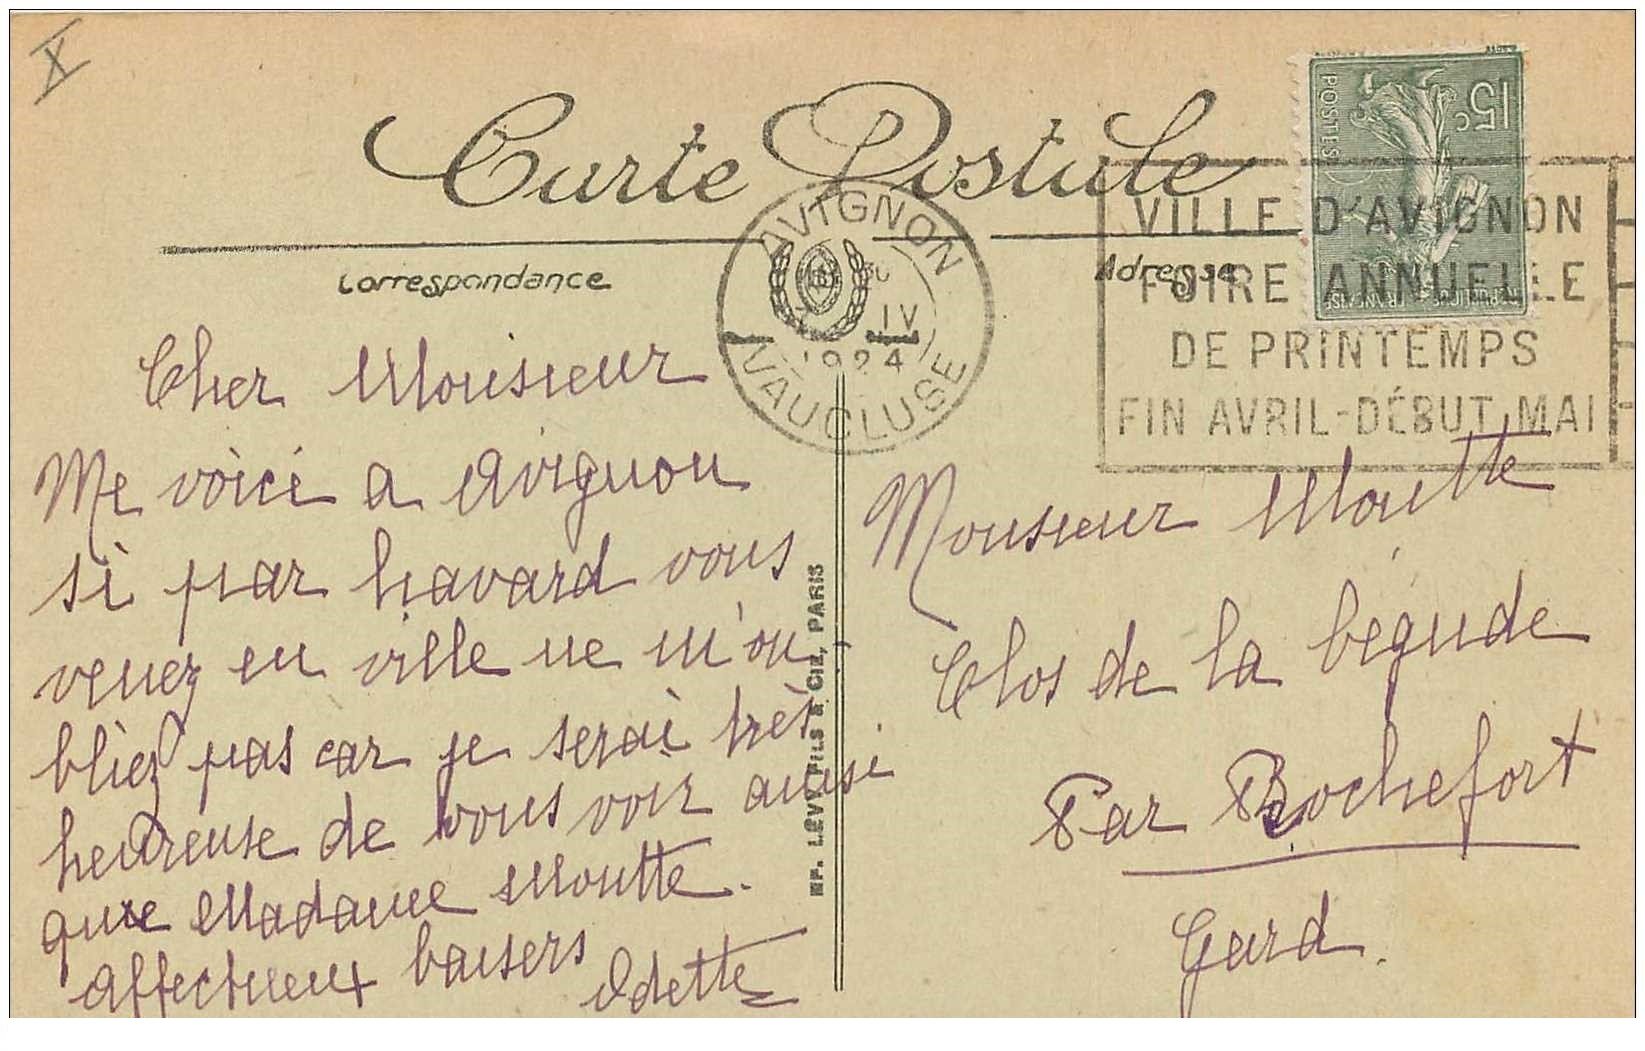 X
Carte Postale
Correspondance
Adresse
AVIGNON
IV
1924
VAUCLUSE
VILLE D'AVIGNON
FOIRE ANNUELLE
DE PRINTEMPS
FIN AVRIL-DÉBUT MAI
15c
POSTES
REPUBLIQUE FRANÇAISE
Cher Monsieur
Me voici a Avignon
si par havard vous
venez en ville ne m'ou
bliez pas car je serai très
heureuse de vous voir ausi
que Madame Moutte.
affectueux baisers Odette
IMP. LÉVY FILS & CIE, PARIS
Monsieur Moutte
Clos de la bégude
Par Rochefort
Gard.